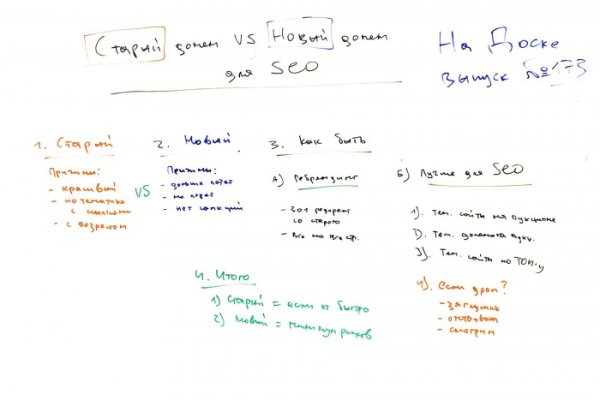 Старый домен VS Новый домен
для SEO
На Доске
выпуск №173
1. Старый
Причины:
- красивый
- по тематике
с ссылками
- с возрастом
VS
2. Новый
Причины:
- дольше
- нет санкций
3. Как быть
А) Ребрендинг
- 301 редирект
со старого
- Все на все стр.
Б) Лучше для SEO
1). Тем. сайты на аукционе
2). Тем. домены
3). Тем. сайты по ТОП-у
4). если дроп?
- загрузил
- отстоялся
- смотрим
4. Итого
1) Старый = если ок быстро
2) Новый = минимум рисков